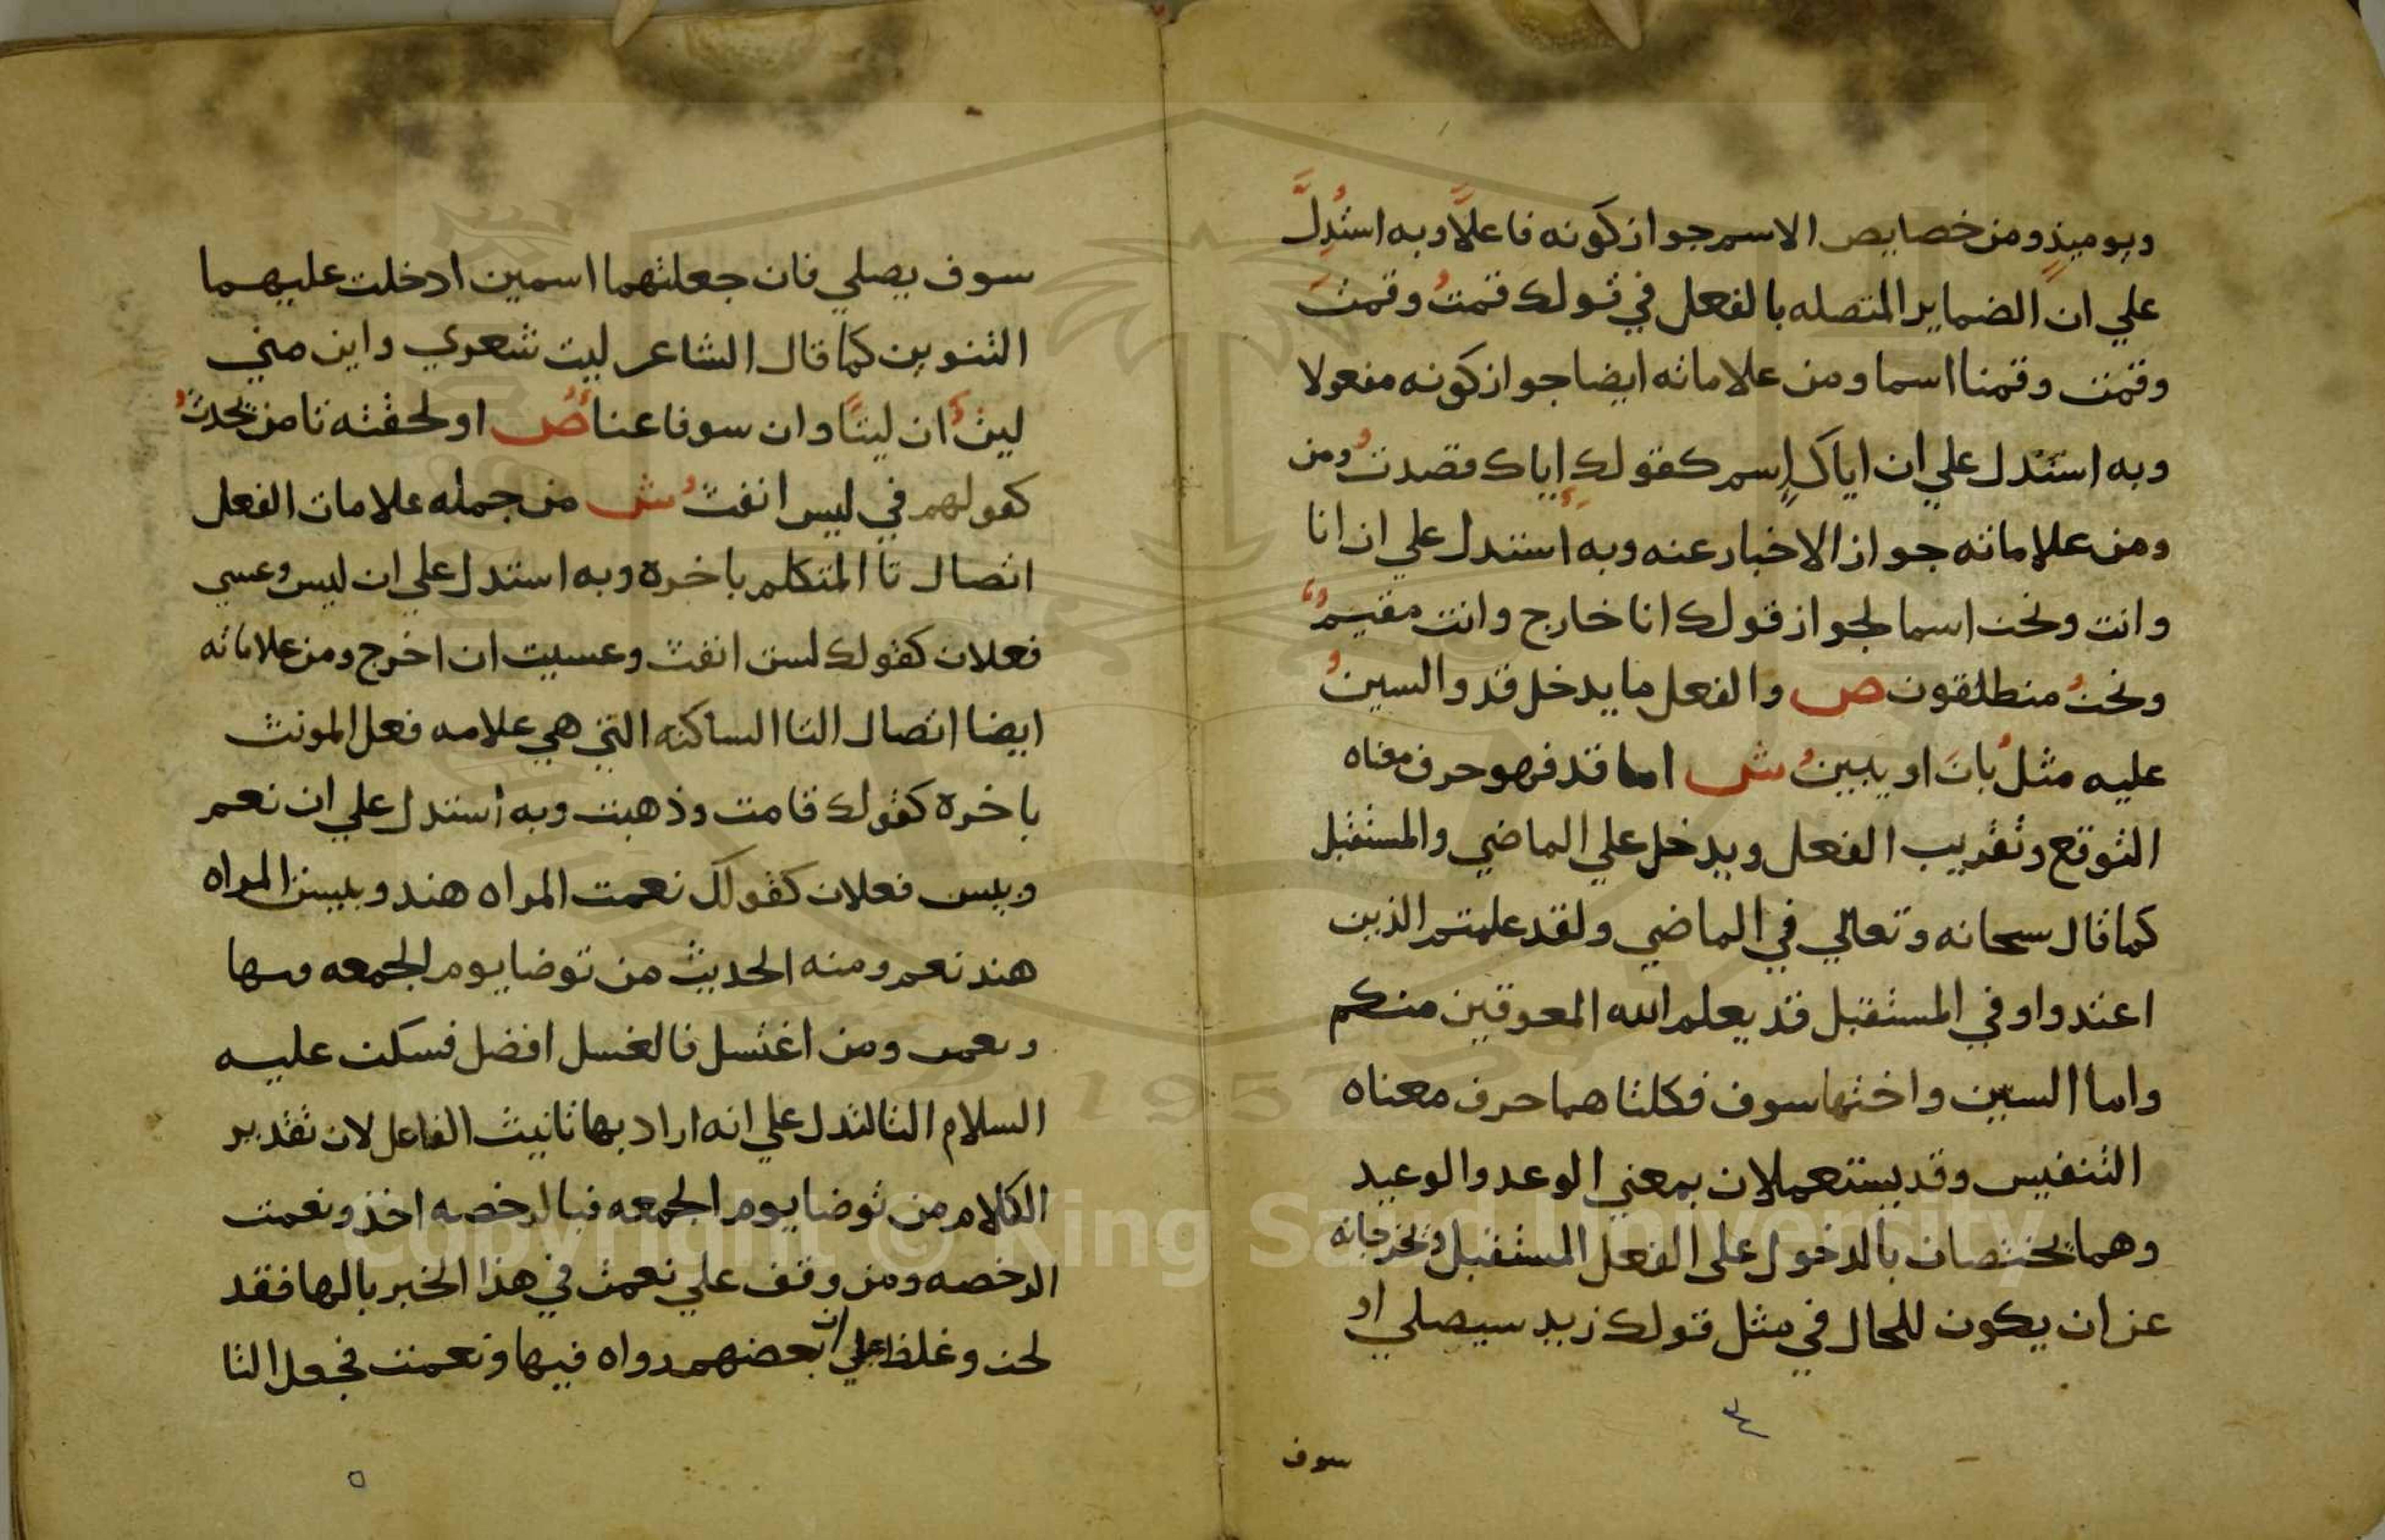 ويوميذٍ ومن خصايص الاسم جواز كونه فاعلًا وبه استُدِلَّ
علي ان الضماير المتصله بالفعل في قولك قمتُ وقمتَ
وقمت وقمنا اسما ومن علاماته ايضا جواز كونه مفعولا
وبه استدل علي ان اياك اسم كقولك إياك قصدتُ ومن
ومن علاماته جواز الاخبار عنه وبه استدل علي ان انا
وانت ونحن اسما لجواز قولك انا خارج وانت مقيمٌ
ونحنُ منطلقون ص والفعل ما يدخل قد والسينُ
عليه مثلُ بانَ او يبينُ ش اما قد فهو حرف معناه
التوقع وتقريب الفعل ويدخل علي الماضي والمستقبل
كما قال سبحانه وتعالي في الماضي ولقد علمتم الذين
اعتدوا وفي المستقبل قد يعلم الله المعوقين منكم
واما السين واختها سوف فكلتا هما حرف معناه
التنفيس وقد يستعملان بمعني الوعد والوعيد
وهما يختصان بالدخول علي الفعل المستقبل وتخرجانه
عن ان يكون للحال في مثل قولك زيد سيصلي او
٤
سوف
سوف يصلي فان جعلتهما اسمين ادخلت عليهما
التنوين كما قال الشاعر ليت شعري واين مني
ليتُ ان ليتًا وان سوفا عنا ص او لحقته تا من يحدثُ
كقولهم في ليس انفتُ ش من جمله علامات الفعل
اتصال تا المتكلم باخره وبه استدل علي ان ليس وعسي
فعلان كقولك لست انفث وعسيت ان اخرج ومن علاماته
ايضا اتصال التا الساكنه التي هي علامه فعل المونث
باخره كقولك قامت وذهبت وبه استدل علي ان نعم
وبيس فعلان كقولك نعمت المراه هند وبيست المراه
هند نعم ومنه الحديث من توضا يوم الجمعه فبها
ونعمت ومن اغتسل فالغسل افضل فسكن عليه
السلام التا لتدل علي انه اراد بها تانيث الفاعل لان تقدير
الكلام من توضا يوم الجمعه فبالرخصه اخذ ونعمت
الرخصه ومن وقف علي نعمت في هذا الخبر بالها فقد
لحن وغلط علي ان بعضهم رواه فيها ونعمت فجعل التا
٥
Copyright © King Saud University
1957